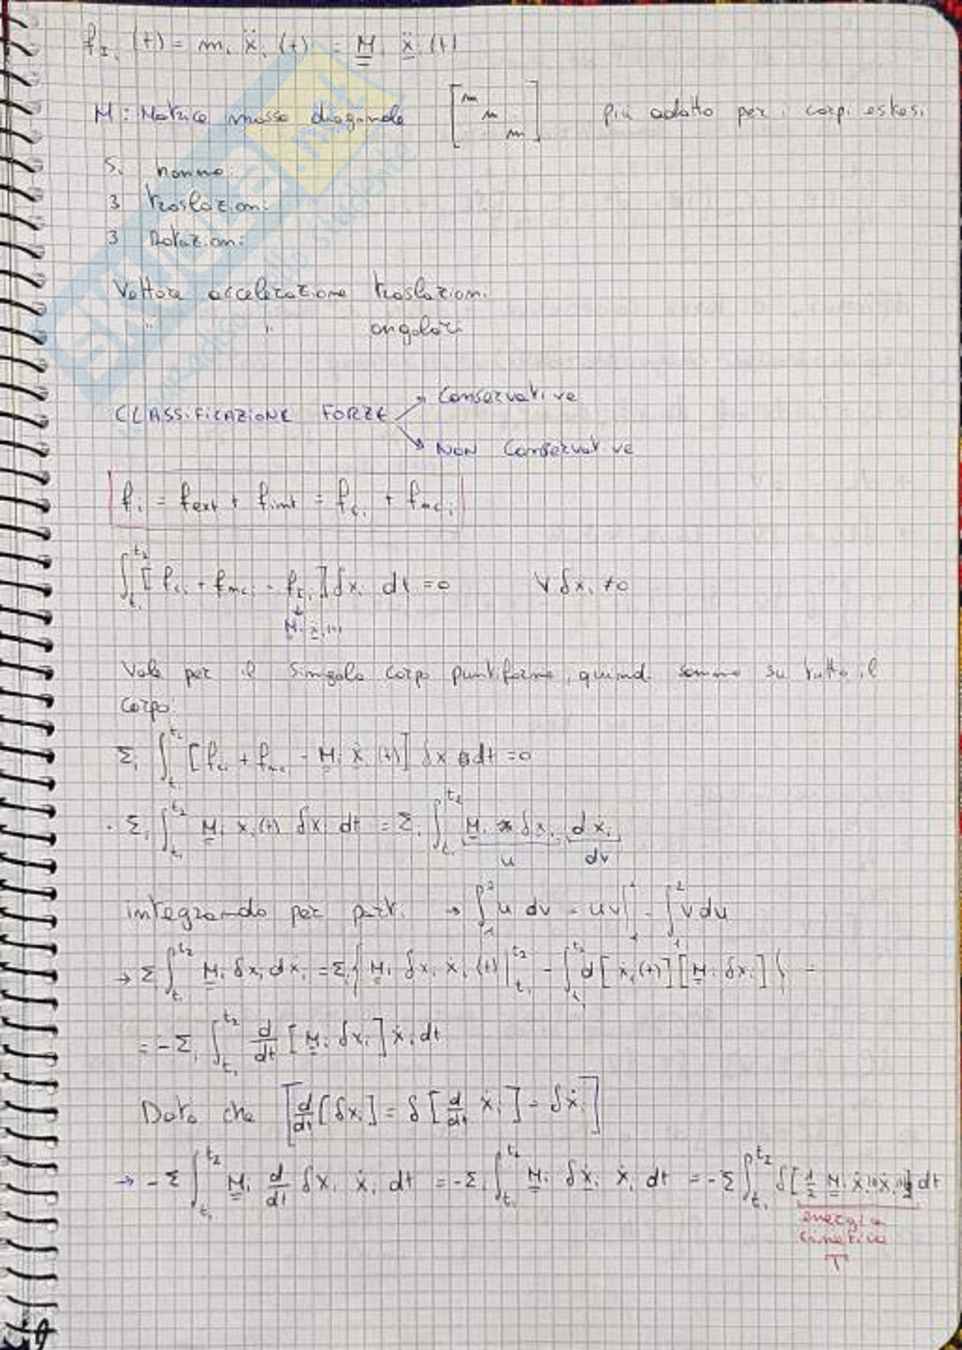 f_I_i (t) = m_i ẍ_i (t) = M_i ẍ_i (t)
M: Matrice massa diagonale [m m m] più adatto per i corpi estesi
Si hanno:
3 traslazioni
3 Rotazioni
Vettore accelerazione traslazioni
" " angolari
CLASSIFICAZIONE FORZE → Conservative
→ NON Conservative
f_i = f_ext + f_int = f_c_i + f_nc_i
∫_t₁^t₂ [f_c_i + f_nc_i - f_I_i] δx_i dt = 0 ∀ δx_i ≠ 0
M_i ẍ_i(t)
Vale per il singolo corpo puntiforme, quindi sommo su tutto il
corpo:
Σ_i ∫_t₁^t₂ [f_c_i + f_nc_i - M_i ẍ_i (t)] δx dt = 0
· Σ_i ∫_t₁^t₂ M_i ẍ_i(t) δx_i dt = Σ_i ∫_t₁^t₂ M_i δx_i dẋ_i
u dv
integrando per parti → ∫_1^2 u dv = uv|_1^2 - ∫_1^2 v du
→ Σ ∫_t₁^t₂ M_i δx_i dẋ_i = Σ_i { M_i δx_i ẋ_i (t) |_t₁^t₂ - ∫_t₁^t₂ d[ẋ_i(t)] [M_i δx_i] } =
= - Σ_i ∫_t₁^t₂ d/dt [M_i δx_i] ẋ_i dt
Dato che [d/dt [δx_i] = δ [d/dt ẋ_i] = δẋ_i]
→ - Σ ∫_t₁^t₂ M_i d/dt δx_i ẋ_i dt = - Σ_i ∫_t₁^t₂ M_i δẋ_i ẋ_i dt = - Σ ∫_t₁^t₂ δ[1/2 M_i ẋ_i(t) ẋ_i(t)] dt
energia
cinetica
T